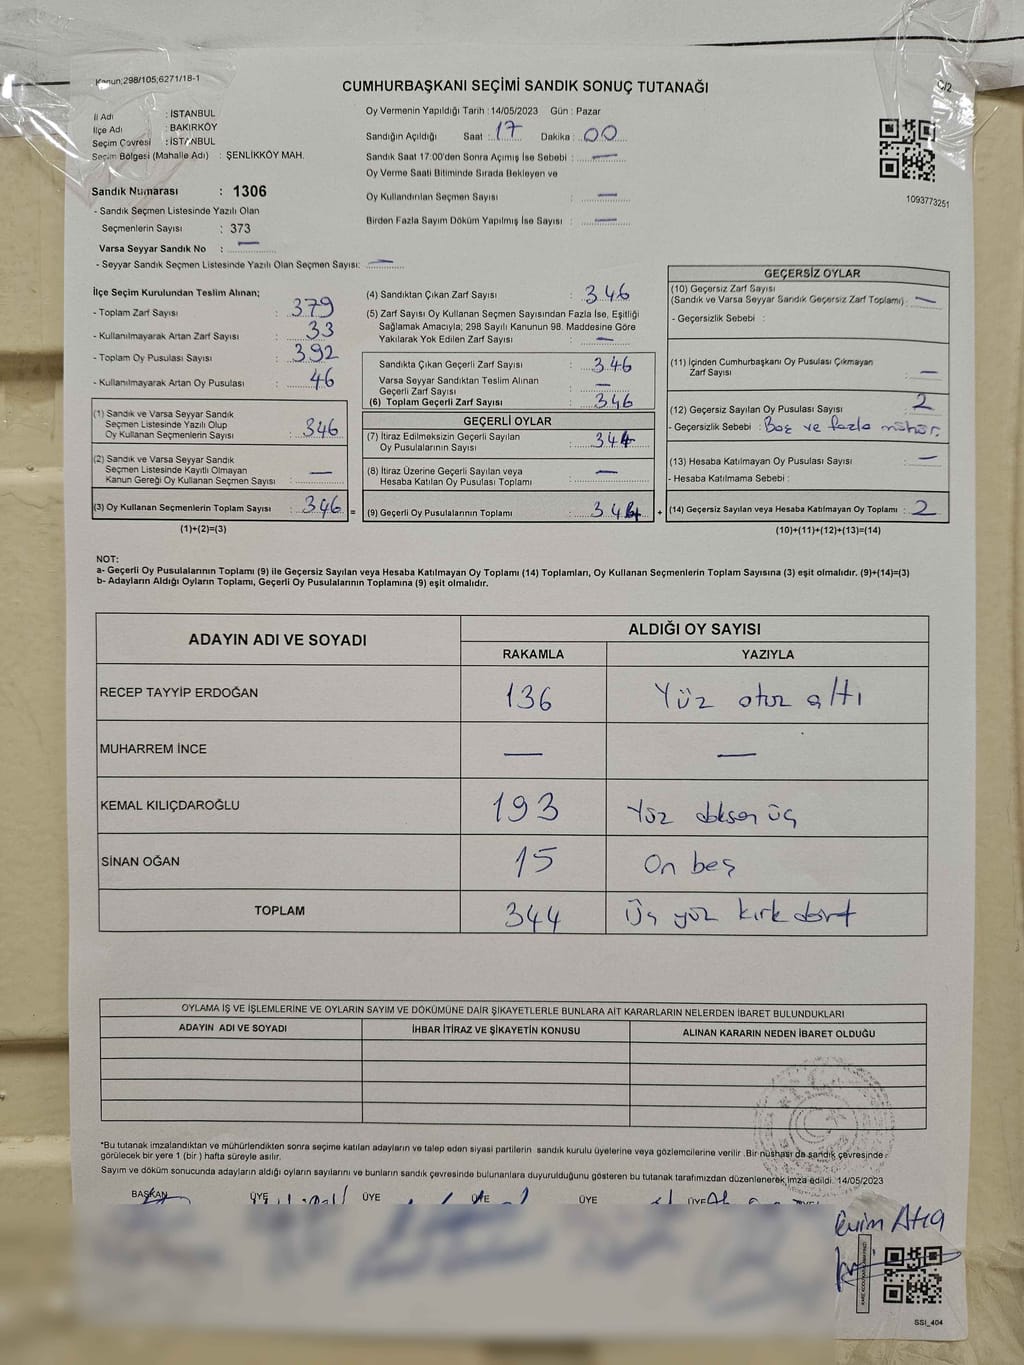 Kanun;298/105;6271/18-1
CUMHURBAŞKANI SEÇİMİ SANDIK SONUÇ TUTANAĞI
C/2
İl Adı : İSTANBUL
İlçe Adı : BAKIRKÖY
Seçim Çevresi : İSTANBUL
Seçim Bölgesi (Mahalle Adı) : ŞENLİKKÖY MAH.
Sandık Numarası : 1306
- Sandık Seçmen Listesinde Yazılı Olan
Seçmenlerin Sayısı : 373
Varsa Seyyar Sandık No : —
- Seyyar Sandık Seçmen Listesinde Yazılı Olan Seçmen Sayısı: —
Oy Vermenin Yapıldığı Tarih : 14/05/2023 Gün : Pazar
Sandığın Açıldığı Saat : 17 Dakika : 00
Sandık Saat 17:00'den Sonra Açımış İse Sebebi : —
Oy Verme Saati Bitiminde Sırada Bekleyen ve
Oy Kullandırılan Seçmen Sayısı : —
Birden Fazla Sayım Döküm Yapılmış İse Sayısı : —
1093773251
İlçe Seçim Kurulundan Teslim Alınan;
- Toplam Zarf Sayısı : 379
- Kullanılmayarak Artan Zarf Sayısı : 33
- Toplam Oy Pusulası Sayısı : 392
- Kullanılmayarak Artan Oy Pusulası : 46
(1) Sandık ve Varsa Seyyar Sandık
Seçmen Listesinde Yazılı Olup
Oy Kullanan Seçmenlerin Sayısı : 346
(2) Sandık ve Varsa Seyyar Sandık
Seçmen Listesinde Kayıtlı Olmayan
Kanun Gereği Oy Kullanan Seçmen Sayısı : —
(3) Oy Kullanan Seçmenlerin Toplam Sayısı : 346 =
(1)+(2)=(3)
(4) Sandıktan Çıkan Zarf Sayısı : 346
(5) Zarf Sayısı Oy Kullanan Seçmen Sayısından Fazla İse, Eşitliği
Sağlamak Amacıyla; 298 Sayılı Kanunun 98. Maddesine Göre
Yakılarak Yok Edilen Zarf Sayısı : —
Sandıkta Çıkan Geçerli Zarf Sayısı : 346
Varsa Seyyar Sandıktan Teslim Alınan
Geçerli Zarf Sayısı : —
(6) Toplam Geçerli Zarf Sayısı : 346
GEÇERLİ OYLAR
(7) İtiraz Edilmeksizin Geçerli Sayılan
Oy Pusulalarının Sayısı : 344
(8) İtiraz Üzerine Geçerli Sayılan veya
Hesaba Katılan Oy Pusulası Toplamı : —
(9) Geçerli Oy Pusulalarının Toplamı : 344 +
GEÇERSİZ OYLAR
(10) Geçersiz Zarf Sayısı
(Sandık ve Varsa Seyyar Sandık Geçersiz Zarf Toplamı) : —
- Geçersizlik Sebebi :
(11) İçinden Cumhurbaşkanı Oy Pusulası Çıkmayan
Zarf Sayısı : —
(12) Geçersiz Sayılan Oy Pusulası Sayısı : 2
- Geçersizlik Sebebi : Boş ve fazla mühür.
(13) Hesaba Katılmayan Oy Pusulası Sayısı : —
- Hesaba Katılmama Sebebi :
(14) Geçersiz Sayılan veya Hesaba Katılmayan Oy Toplamı : 2
(10)+(11)+(12)+(13)=(14)
NOT:
a- Geçerli Oy Pusulalarının Toplamı (9) ile Geçersiz Sayılan veya Hesaba Katılmayan Oy Toplamı (14) Toplamları, Oy Kullanan Seçmenlerin Toplam Sayısına (3) eşit olmalıdır. (9)+(14)=(3)
b- Adayların Aldığı Oyların Toplamı, Geçerli Oy Pusulalarının Toplamına (9) eşit olmalıdır.
ADAYIN ADI VE SOYADI ALDIĞI OY SAYISI
RAKAMLA YAZIYLA
RECEP TAYYİP ERDOĞAN 136 Yüz otuz altı
MUHARREM İNCE — —
KEMAL KILIÇDAROĞLU 193 Yüz doksan üç
SİNAN OĞAN 15 On beş
TOPLAM 344 Üç yüz kırk dört
OYLAMA İŞ VE İŞLEMLERİNE VE OYLARIN SAYIM VE DÖKÜMÜNE DAİR ŞİKAYETLERLE BUNLARA AİT KARARLARIN NELERDEN İBARET BULUNDUKLARI
ADAYIN ADI VE SOYADI İHBAR İTİRAZ VE ŞİKAYETİN KONUSU ALINAN KARARIN NEDEN İBARET OLDUĞU
*Bu tutanak imzalandıktan ve mühürlendikten sonra seçime katılan adayların ve talep eden siyasi partilerin sandık kurulu üyelerine veya gözlemcilerine verilir. Bir nüshası da sandık çevresinde
görülecek bir yere 1 (bir) hafta süreyle asılır.
Sayım ve döküm sonucunda adayların aldığı oyların sayılarını ve bunların sandık çevresinde bulunanlara duyurulduğunu gösteren bu tutanak tarafımızdan düzenlenerek imza edildi. 14/05/2023
BAŞKAN ÜYE ÜYE ÜYE ÜYE ÜYE ÜYE
SSI_404